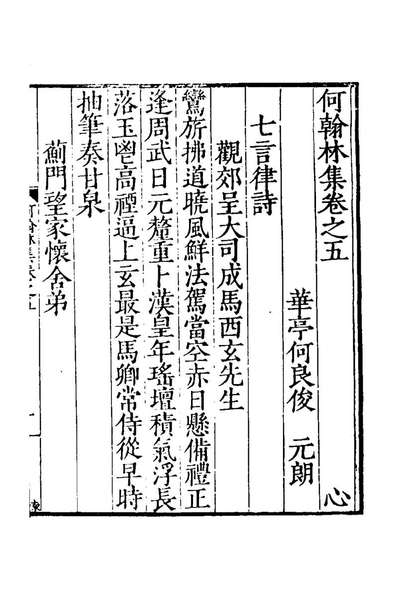 何翰林集卷之五 心
華亭何良俊 元朗
七言律詩
觀郊呈大司成馬西玄先生
鸞旂拂道曉風鮮法駕當空赤日懸備禮正
逢周武日元釐重卜漢皇年瑤壇積氣浮長
落玉鬯高禋逼上玄最是馬卿常侍從早時
抽筆奏甘泉
薊門望家懷舍弟